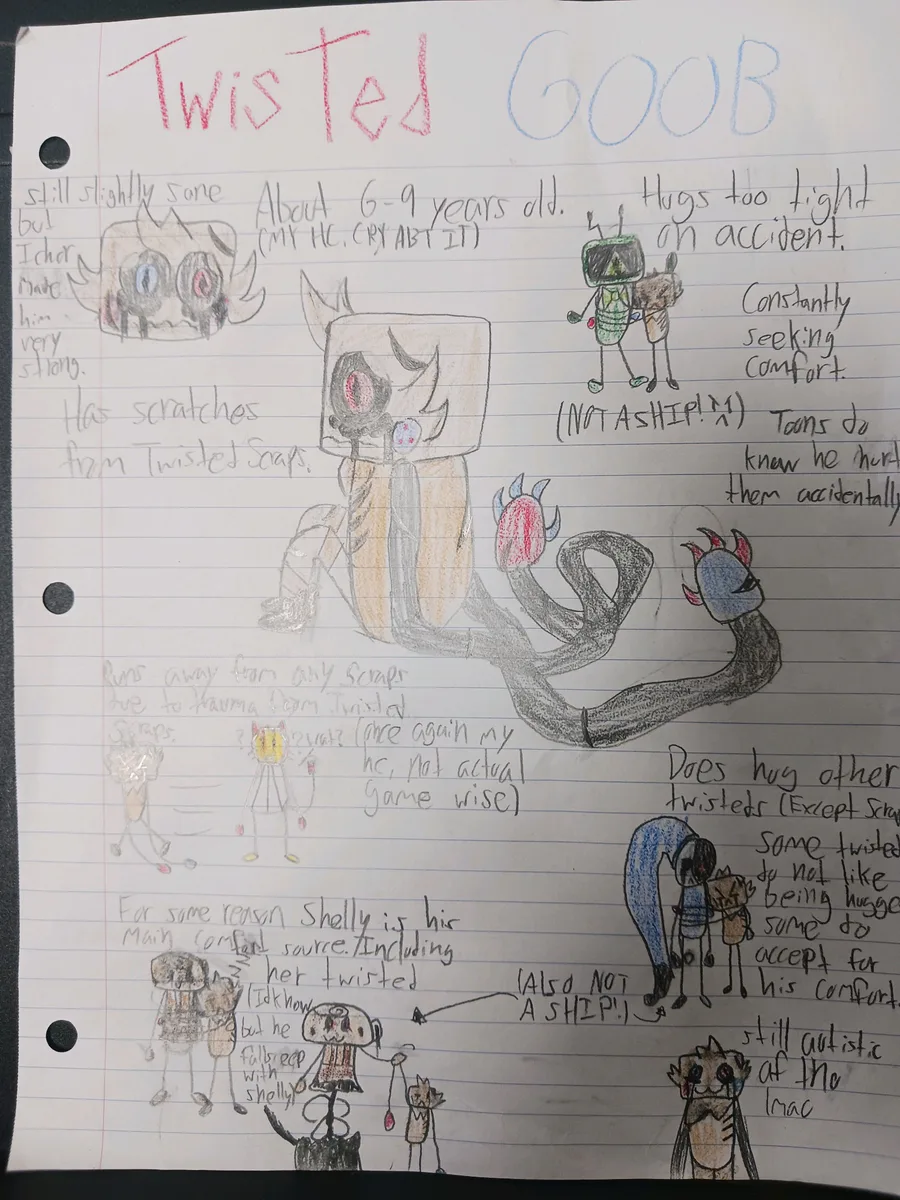 Twisted GOOB
still slightly sane
but
Ichor
made
him
very
strong.
About 6-9 years old.
(MY HC, CRY ABT IT)
Hugs too tight
on accident.
Constantly
seeking
comfort.
(NOT A SHIP!
Toons do
know he hurt
them accidentally
Has scratches
from Twisted Scraps.
Runs away from any scraps
due to trauma from Twisted
Scraps.
(once again my
hc, not actual
game wise)
Does hug other
twisteds (Except Scrap
Some twisted
do not like
being hugge
some do
accept for
his comfort.
For some reason Shelly is his
main comfort source. Including
her twisted
(Idk how
but he
falls eep
with
shelly)
(Also NOT
A SHIP!)
still autistic
af tho
lmao